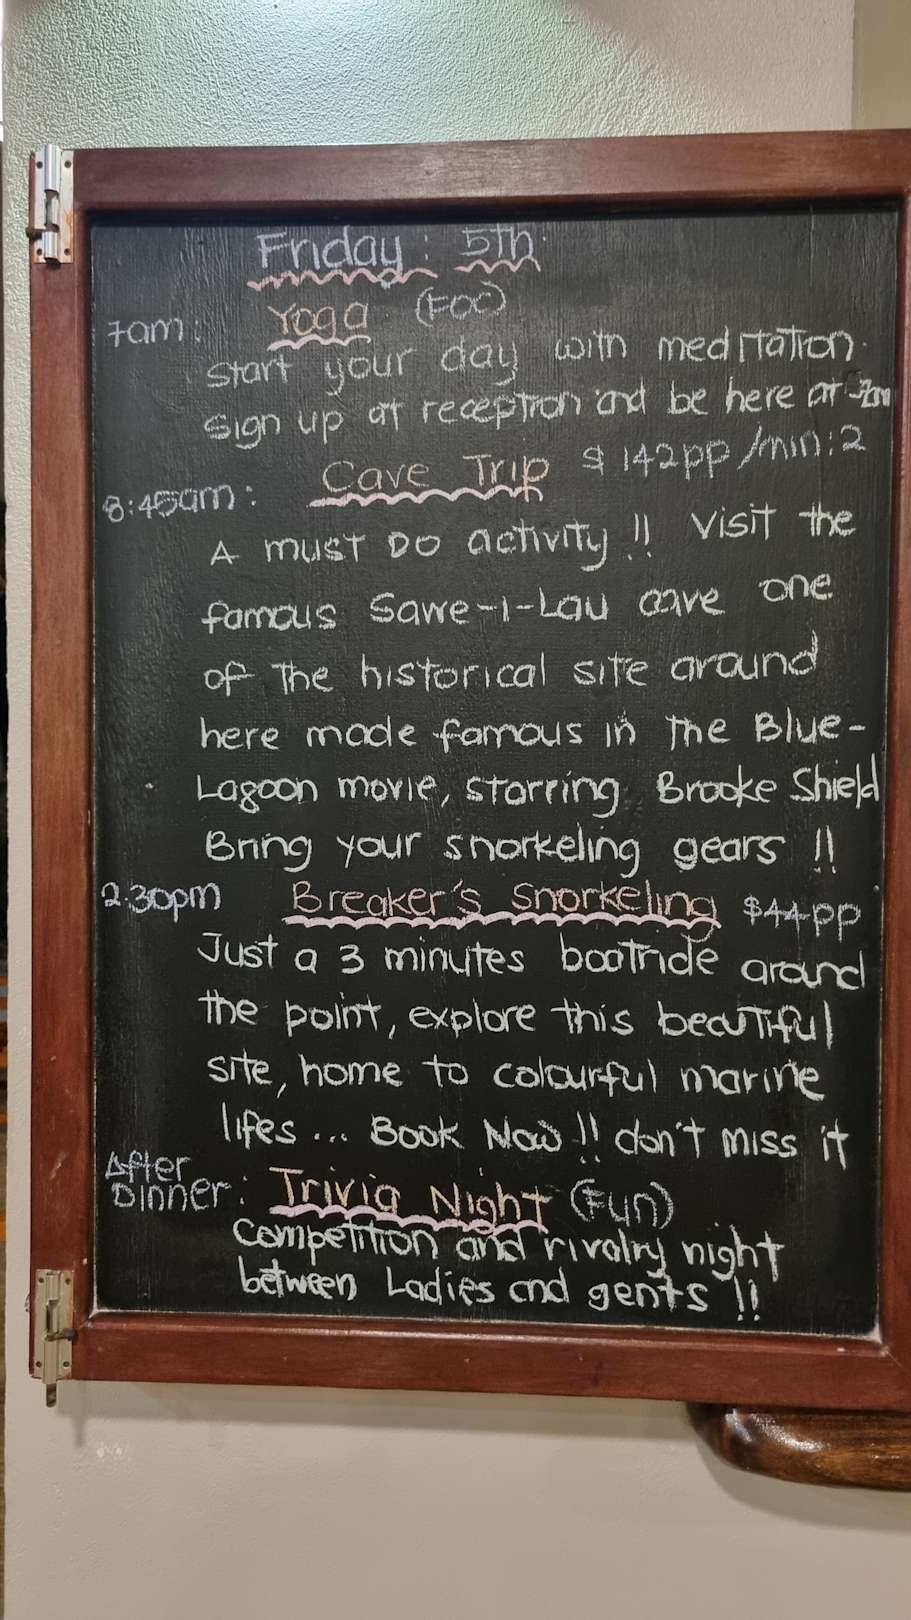 Friday: 5th.
7am: Yoga (FOC)
Start your day with meditation.
Sign up at reception and be here at 7am
8:45am: Cave Trip $142pp/min:2
A MUST DO activity!! Visit the
famous Sawe-i-Lau cave one
of The historical site around
here made famous in The Blue-
Lagoon movie, starring Brooke Shield
Bring your snorkeling gears!!
2.30pm Breaker's Snorkeling $44pp
Just a 3 minutes boatride around
the point, explore this beautiful
site, home to colourful marine
lifes... Book Now!! don't miss it
After
Dinner: Trivia Night (Fun)
Competition and rivalry night
between Ladies and gents!!